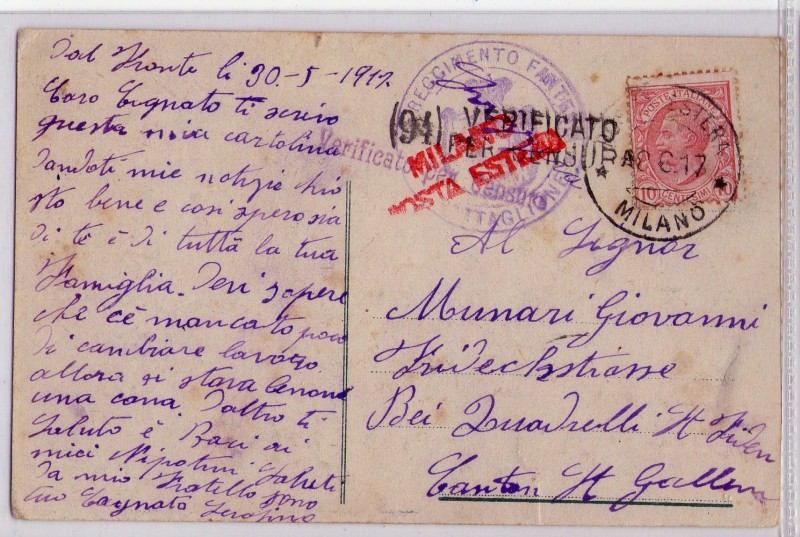 Dal Fronte li 30-5-1917
Caro Cognato ti scrivo
questa mia cartolina
dandoti mie notizie chio
sto bene e cosi spero sia
di te è di tutta la tua
Famiglia. Devi sapere
che cè mancato poco
di cambiare lavoro
allora si stava
una cana. Daltro ti
Saluto è Baci ai
miei Nipotini, Saluti
da mio Fratello Sono
tuo Cognato Serafino
REGGIMENTO FANT
BATTAGLIONE
Verificato per censura
(94) VERIFICATO
PER CENSURA
MILANO
POSTA ESTERA
POSTE ITALIANE
10 CENTESIMI 10
ESTERA
8 6.17
* MILANO *
Al Signor
Munari Giovanni
Bei Quadrelli St Fiden
Canton St Gallen